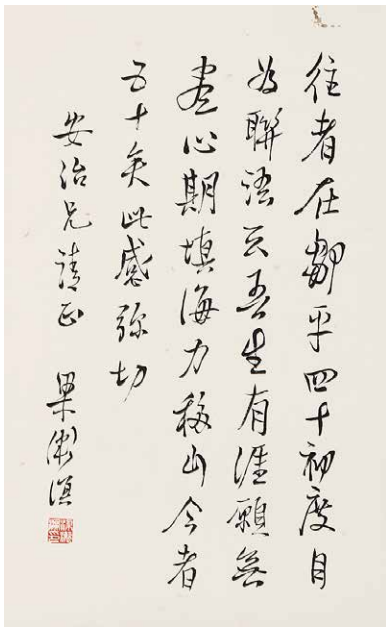 往者在鄒平四十初度自
為聯語云吾生有涯願無
盡心期填海力移山今者
五十矣此感弥切
安治兄請正 梁漱溟